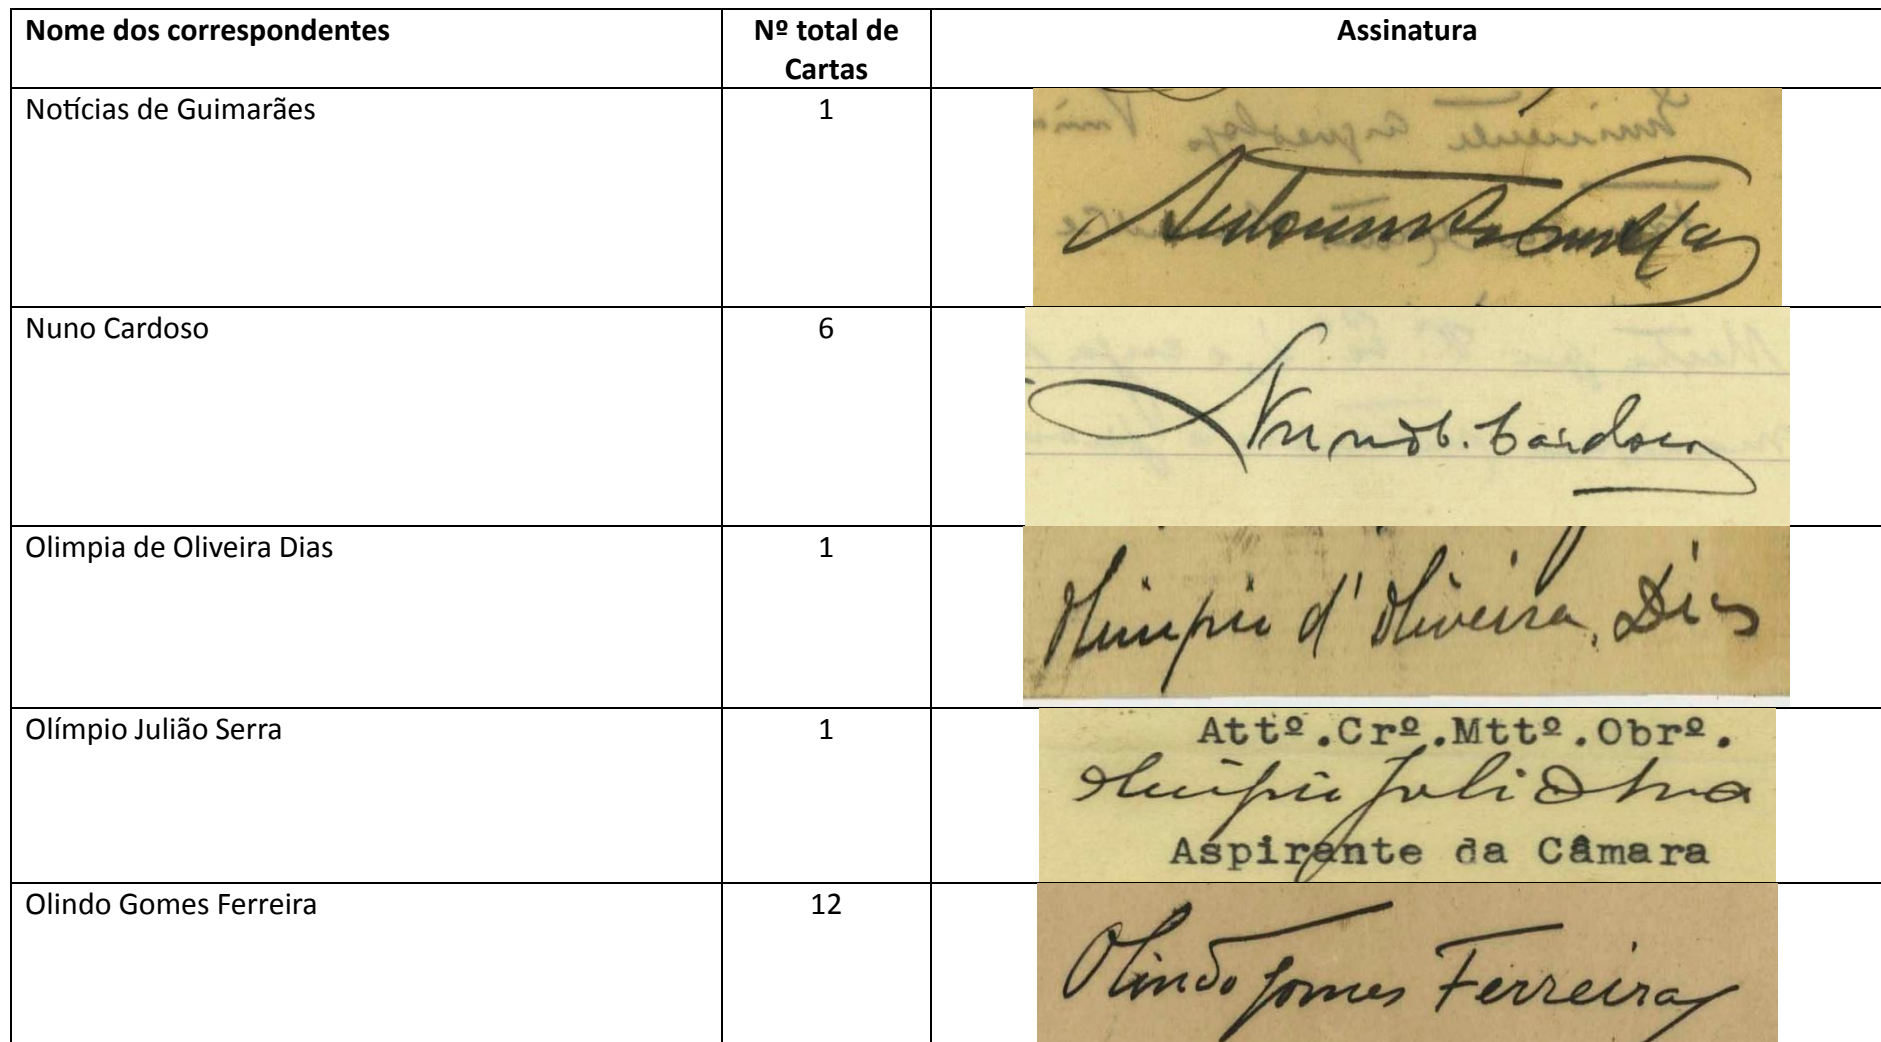 Nome dos correspondentes
Nº total de
Cartas
Assinatura
Notícias de Guimarães
1
Nuno Cardoso
6
Nuno C. Cardoso
Olimpia de Oliveira Dias
1
Olimpia d' Oliveira Dias
Olímpio Julião Serra
1
Attº.Crº.Mttº.Obrº.
Olímpio Julião Serra
Aspirante da Câmara
Olindo Gomes Ferreira
12
Olindo Gomes Ferreira